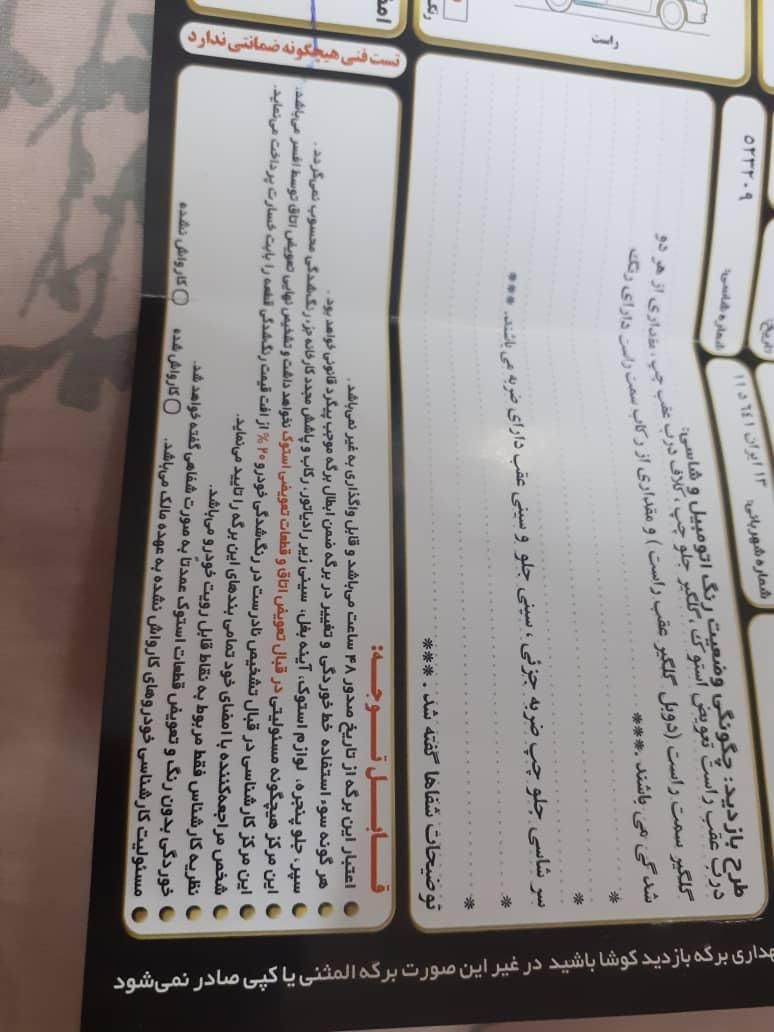 راست
رنگ
تست فنی هیچگونه ضمانتی ندارد
شماره شاسی:
۵۲۳۲۰۹
تاریخ:
شماره شهربانی:
۱۳ ایران ۶۴۱ د ۱۱
طرح بازدید: چگونگی وضعیت رنگ اتومبیل و شاسی:
درب عقب راست تعویض استوک ، گلگیر جلو چپ ، کلاف درب عقب چپ ، مقداری از هر دو
گلگیر سمت راست (دوبل گلگیر عقب راست ) و مقداری از رکاب سمت راست دارای رنگ
شدگی می باشند .***
سر شاسی جلو چپ ضربه جزئی ، سینی جلو و سینی عقب دارای ضربه می باشند. ***
توضیحات شفاها گفته شد . ***
قابل توجه:
اعتبار این برگه از تاریخ صدور ۴۸ ساعت می‌باشد و قابل واگذاری به غیر نمی‌باشد.
هر گونه سوء استفاده خط خوردگی و تغییر در برگه ضمن ابطال برگه موجب پیگرد قانونی خواهد بود .
سپر، جلو پنجره، لوازم استوک، آینه بغل، سینی زیر رادیاتور، رکاب و پاشش مجدد کارخانه جزء رنگ‌شدگی محسوب نمی‌گردد .
این مرکز هیچگونه مسئولیتی در قبال تعویض اتاق و قطعات تعویضی استوک نخواهد داشت و تشخیص نهایی تعویض اتاق توسط افسر می‌باشد.
این مرکز کارشناسی در قبال تشخیص نادرست در رنگ‌شدگی خودرو ۲۰ % از افت قیمت رنگ‌شدگی قطعه را بابت خسارت پرداخت می‌نماید.
شخص مراجعه‌کننده با امضای خود تمامی بندهای این برگه را تایید می‌نماید.
نظریه کارشناس فقط مربوط به نقاط قابل رویت خودرو می‌باشد.
خوردگی بدون رنگ و تعویض قطعات استوک عمدتا به صورت شفاهی گفته خواهد شد.
مسئولیت کارشناسی خودروهای کارواش نشده به عهده مالک می‌باشد.
کارواش شده
کارواش نشده
برگه بازدید کوشا باشید در غیر این صورت برگه المثنی یا کپی صادر نمی‌شود